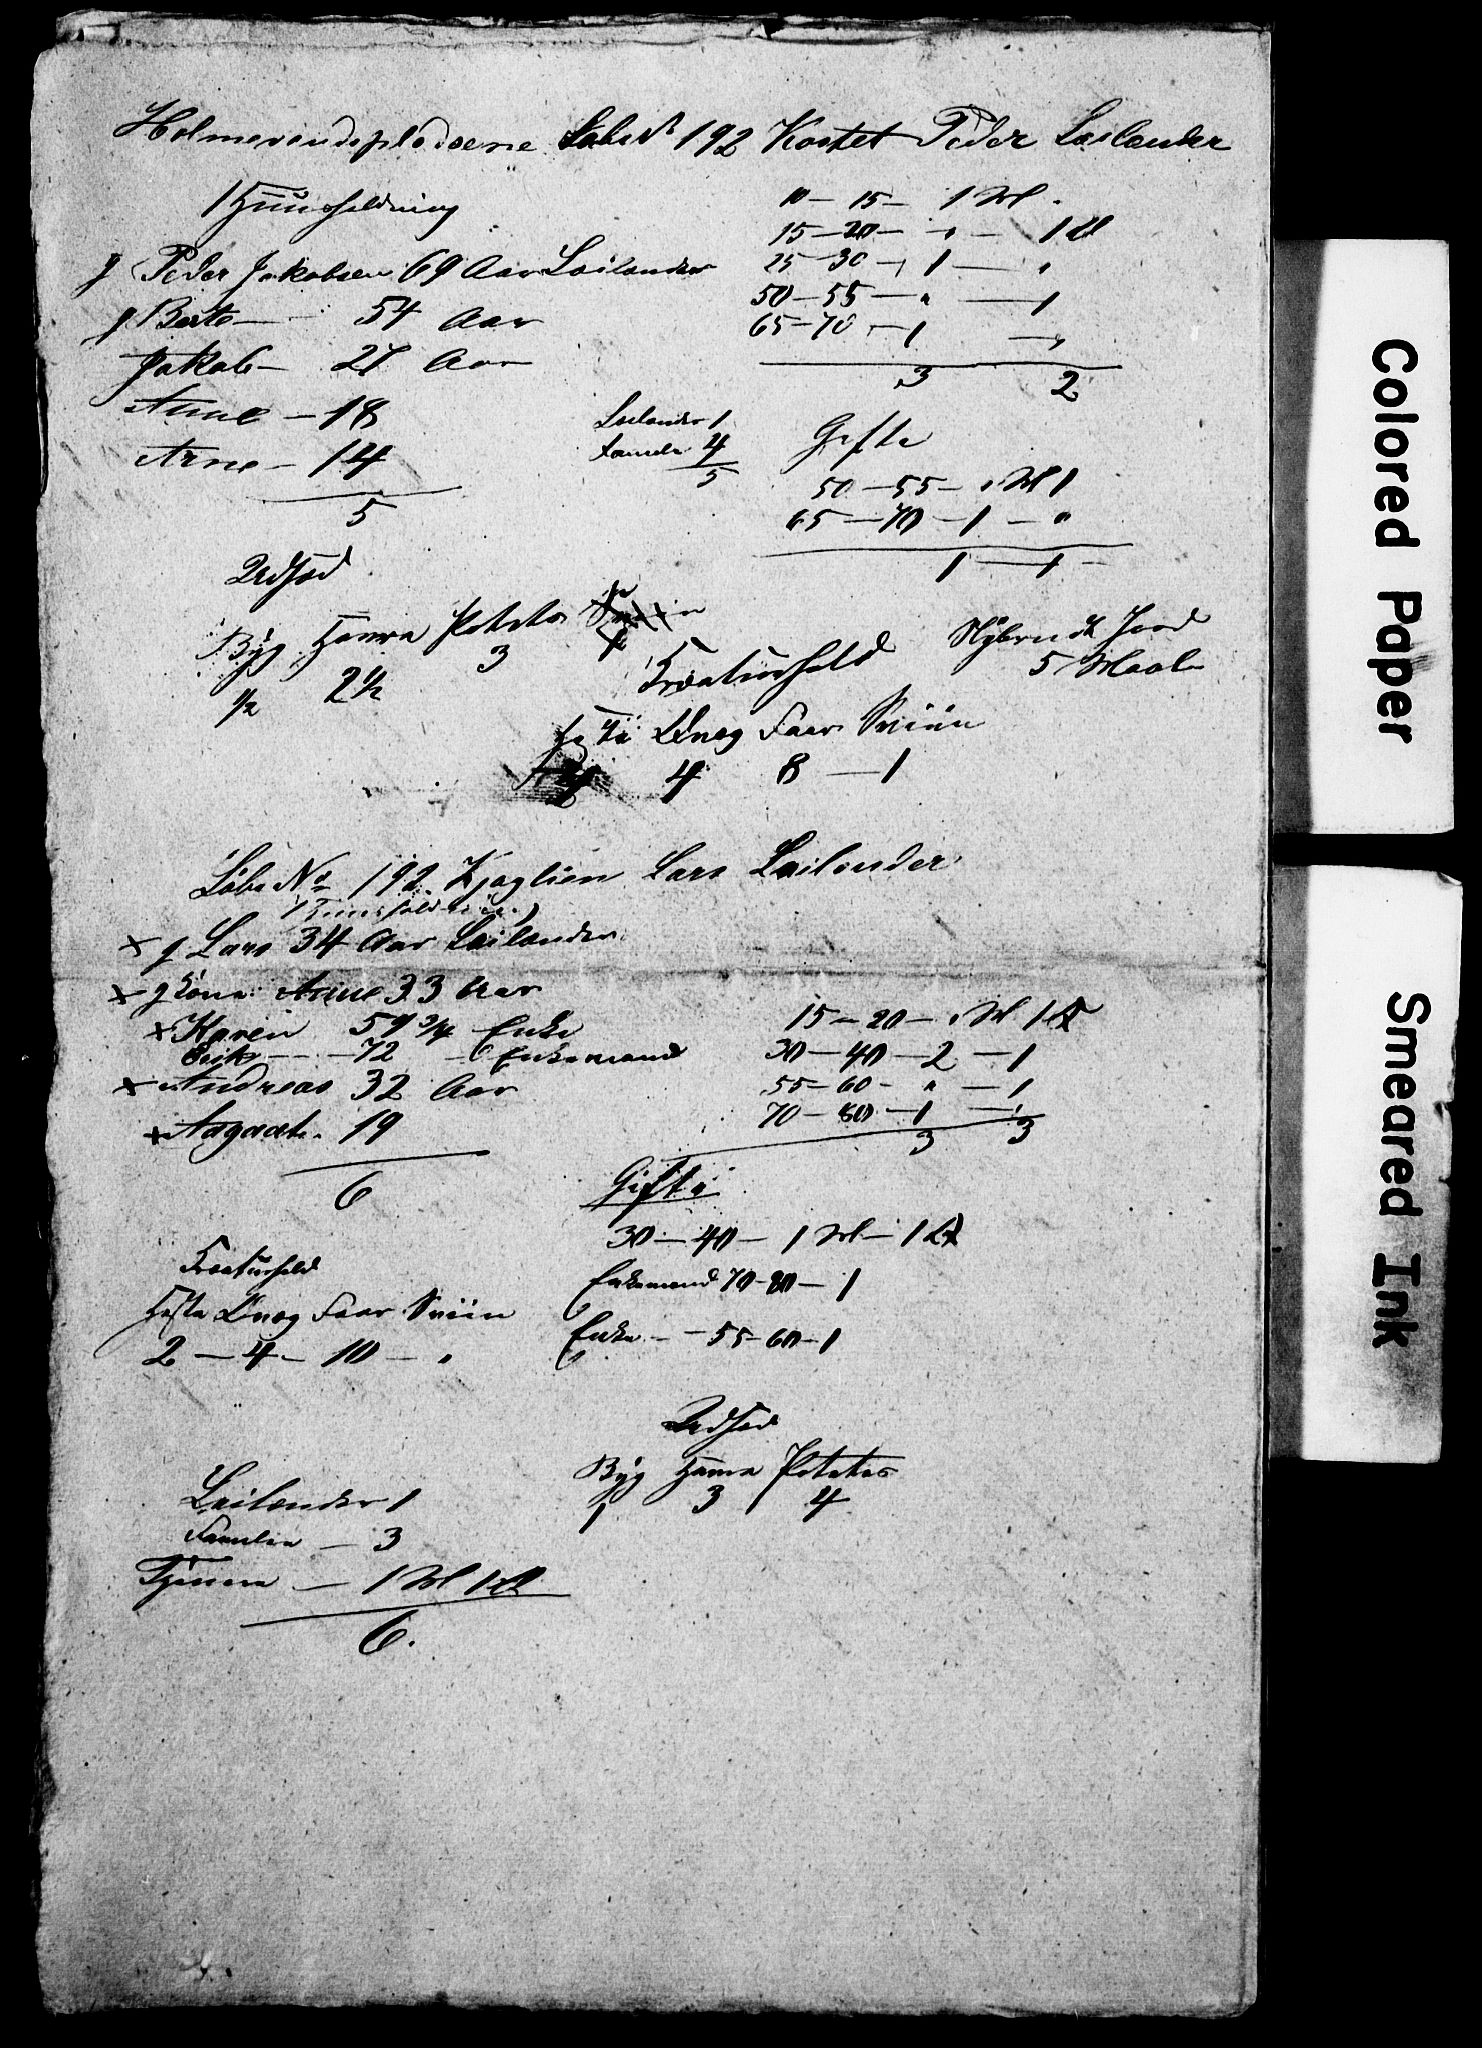 Holmevindspladserne Løbe N 192 Kostet Peder Leilænder
1 Huusholdning
g Peder Jakobsen 69 Aar Leilænder
g Berte — 54 Aar
Jakob — 27 Aar
Anne — 18
Arne — 14
5
10 — 15 — 1 M
15 — 20 — " — 1 K
25 — 30 — 1 — "
50 — 55 — " — 1
65 — 70 — 1 — "
3 2
Leilænder 1
Famelie 4
5
Gifte
50 — 55 — " M 1
65 — 70 — 1 — "
1 — 1 —
Udsæd
Byg Havre Potetes
1/2 2 1/2 3
Kreaturhold
Nÿbrudt Jord
5 Maal
Qvæg Faar Sviin
4 8 — 1
Løbe No 192 Kjøglien Lars Leilænder
1 Huusholdning
x g Lars 34 Aar Leilænder
x g Kone Anne 33 Aar
x Karen 59 3/4 Enke
Erik — 72 — Enkemand
x Andreas 32 Aar
x Aagaat. 19
6
15 — 20 — " M 1 K
30 — 40 — 2 — 1
55 — 60 — " — 1
70 — 80 — 1 — "
3 3
Gifte
30 — 40 — 1 M — 1 K
Enkemand 70 — 80 — 1
Enke — 55 — 60 — 1
Kreaturhold
Heste Qvæg Faar Sviin
2 — 4 — 10 — "
Udsæd
Byg Havre Potetes
1 3 4
Leilænder 1
Famelie — 3
Tjenere — 1 M 1 K
6.
Colored Paper
Smeared Ink